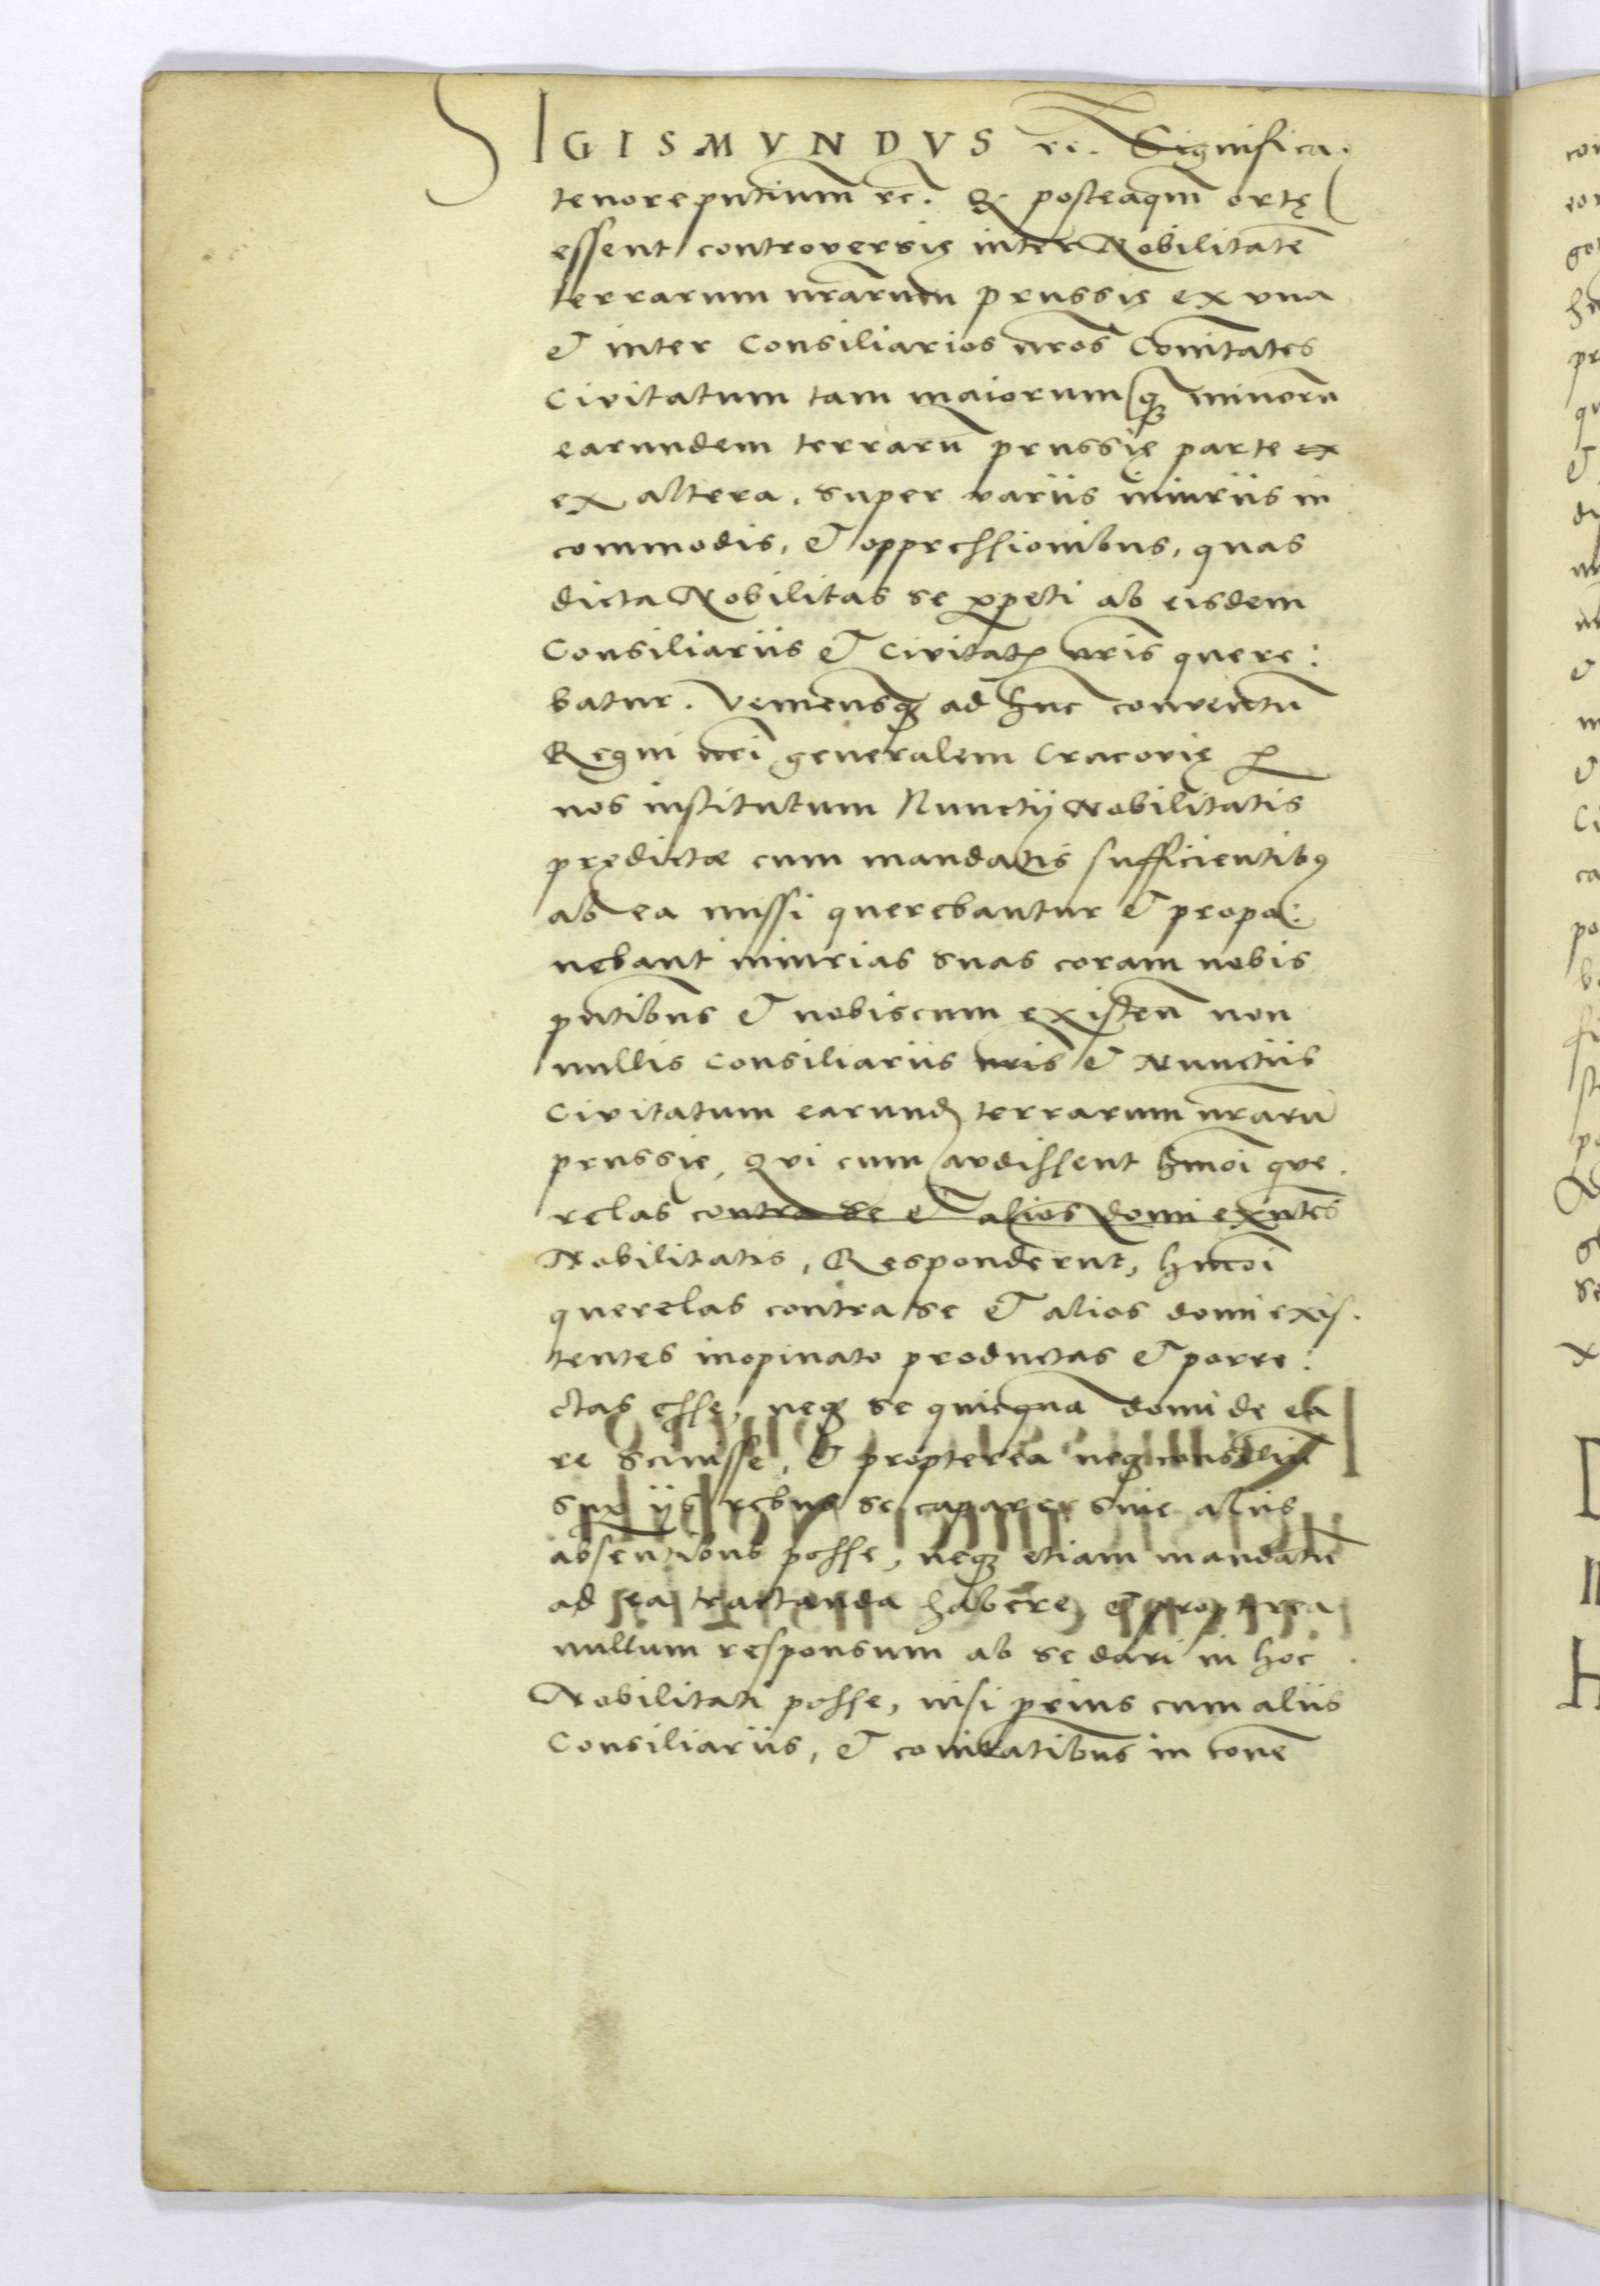 SIGISMVNDVS rc. Significa.
tenore pñtium rc. Q posteaqm̃ ortę
essent controversię inter Nobilitatẽ
terrarum nr̃arum prussię ex vna
et inter Consiliarios nr̃os Com̃itates
Civitatum tam maiorum q minorũ
earundem terrarũ prussię parte ex
ex altera, super variis iniuriis in
commodis, et oppressionibus, quas
dicta Nobilitas se ꝑpeti ab eisdem
Consiliariis et Civitatꝫ nr̃is quere:
batur. Venienesqꝫ ad hũc conventũ
Regni nr̃i generalem Cracovię ꝑ
nos institutum Nunctij Nobilitatis
prędictæ cum mandatis sufficientibꝫ
ab ea missi querebantur et propo:
nebant iniurias suas coram nobis
pñtibus et nobiscum existeñ non
nullis Consiliariis nr̃is et Nunctiis
Civitatum earundꝫ terrarum nr̃arũ
prussię, Qvi cum audissent hm̃oi que.
relas contra se et alios domi exñtes
Nobilitatis, Responderunt, hm̃oi
querelas contra se et alios domi exis.
tentes inopinato productas et porre:
ctas esse, neqꝫ se quicquã domi de ea
re scivisse, et propterea neqꝫ consiliũ
suꝑ ijs rebus se capere sine aliis
absentibus posse, neqꝫ etiam mandatũ
ad ea tractanda habere, et propterea
nullum responsum ab se dari in hoc
Nobilitati posse, nisi prius cum aliis
Consiliariis, et comitatibus in conuẽ